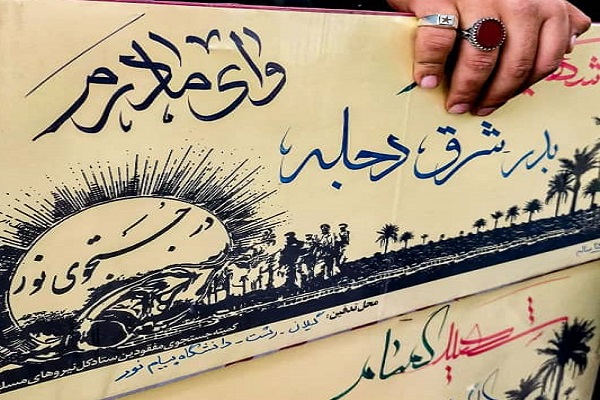 شه
وای مادرم
بدر شرق دجله
در جستجوی نور
محل تدفین: گیلان - رشت - دانشگاه پیام نور
کمیته جستجوی مفقودین ستاد کل نیروهای مسلح
ساله
شهید گمنام